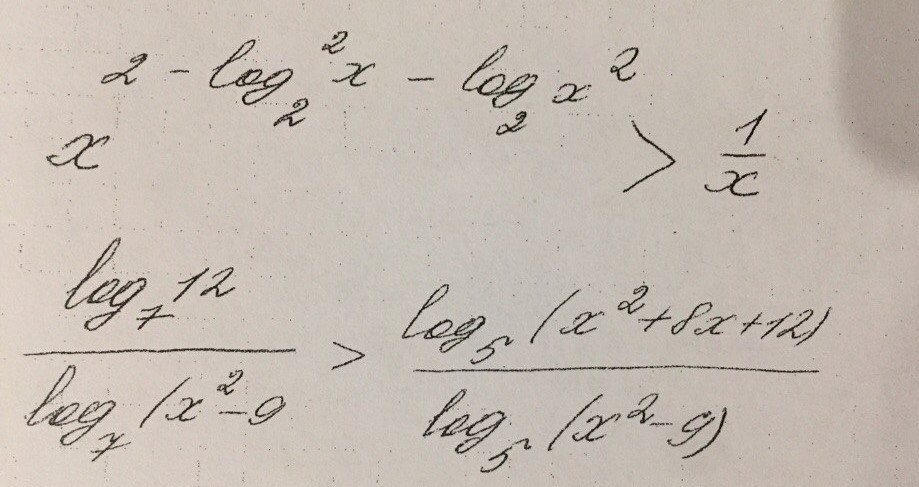 x^{2 - log_2^2 x - log_2 x^2} > \frac{1}{x}
\frac{log_7 12}{log_7 (x^2 - 9} > \frac{log_5 (x^2 + 8x + 12)}{log_5 (x^2 - 9)}